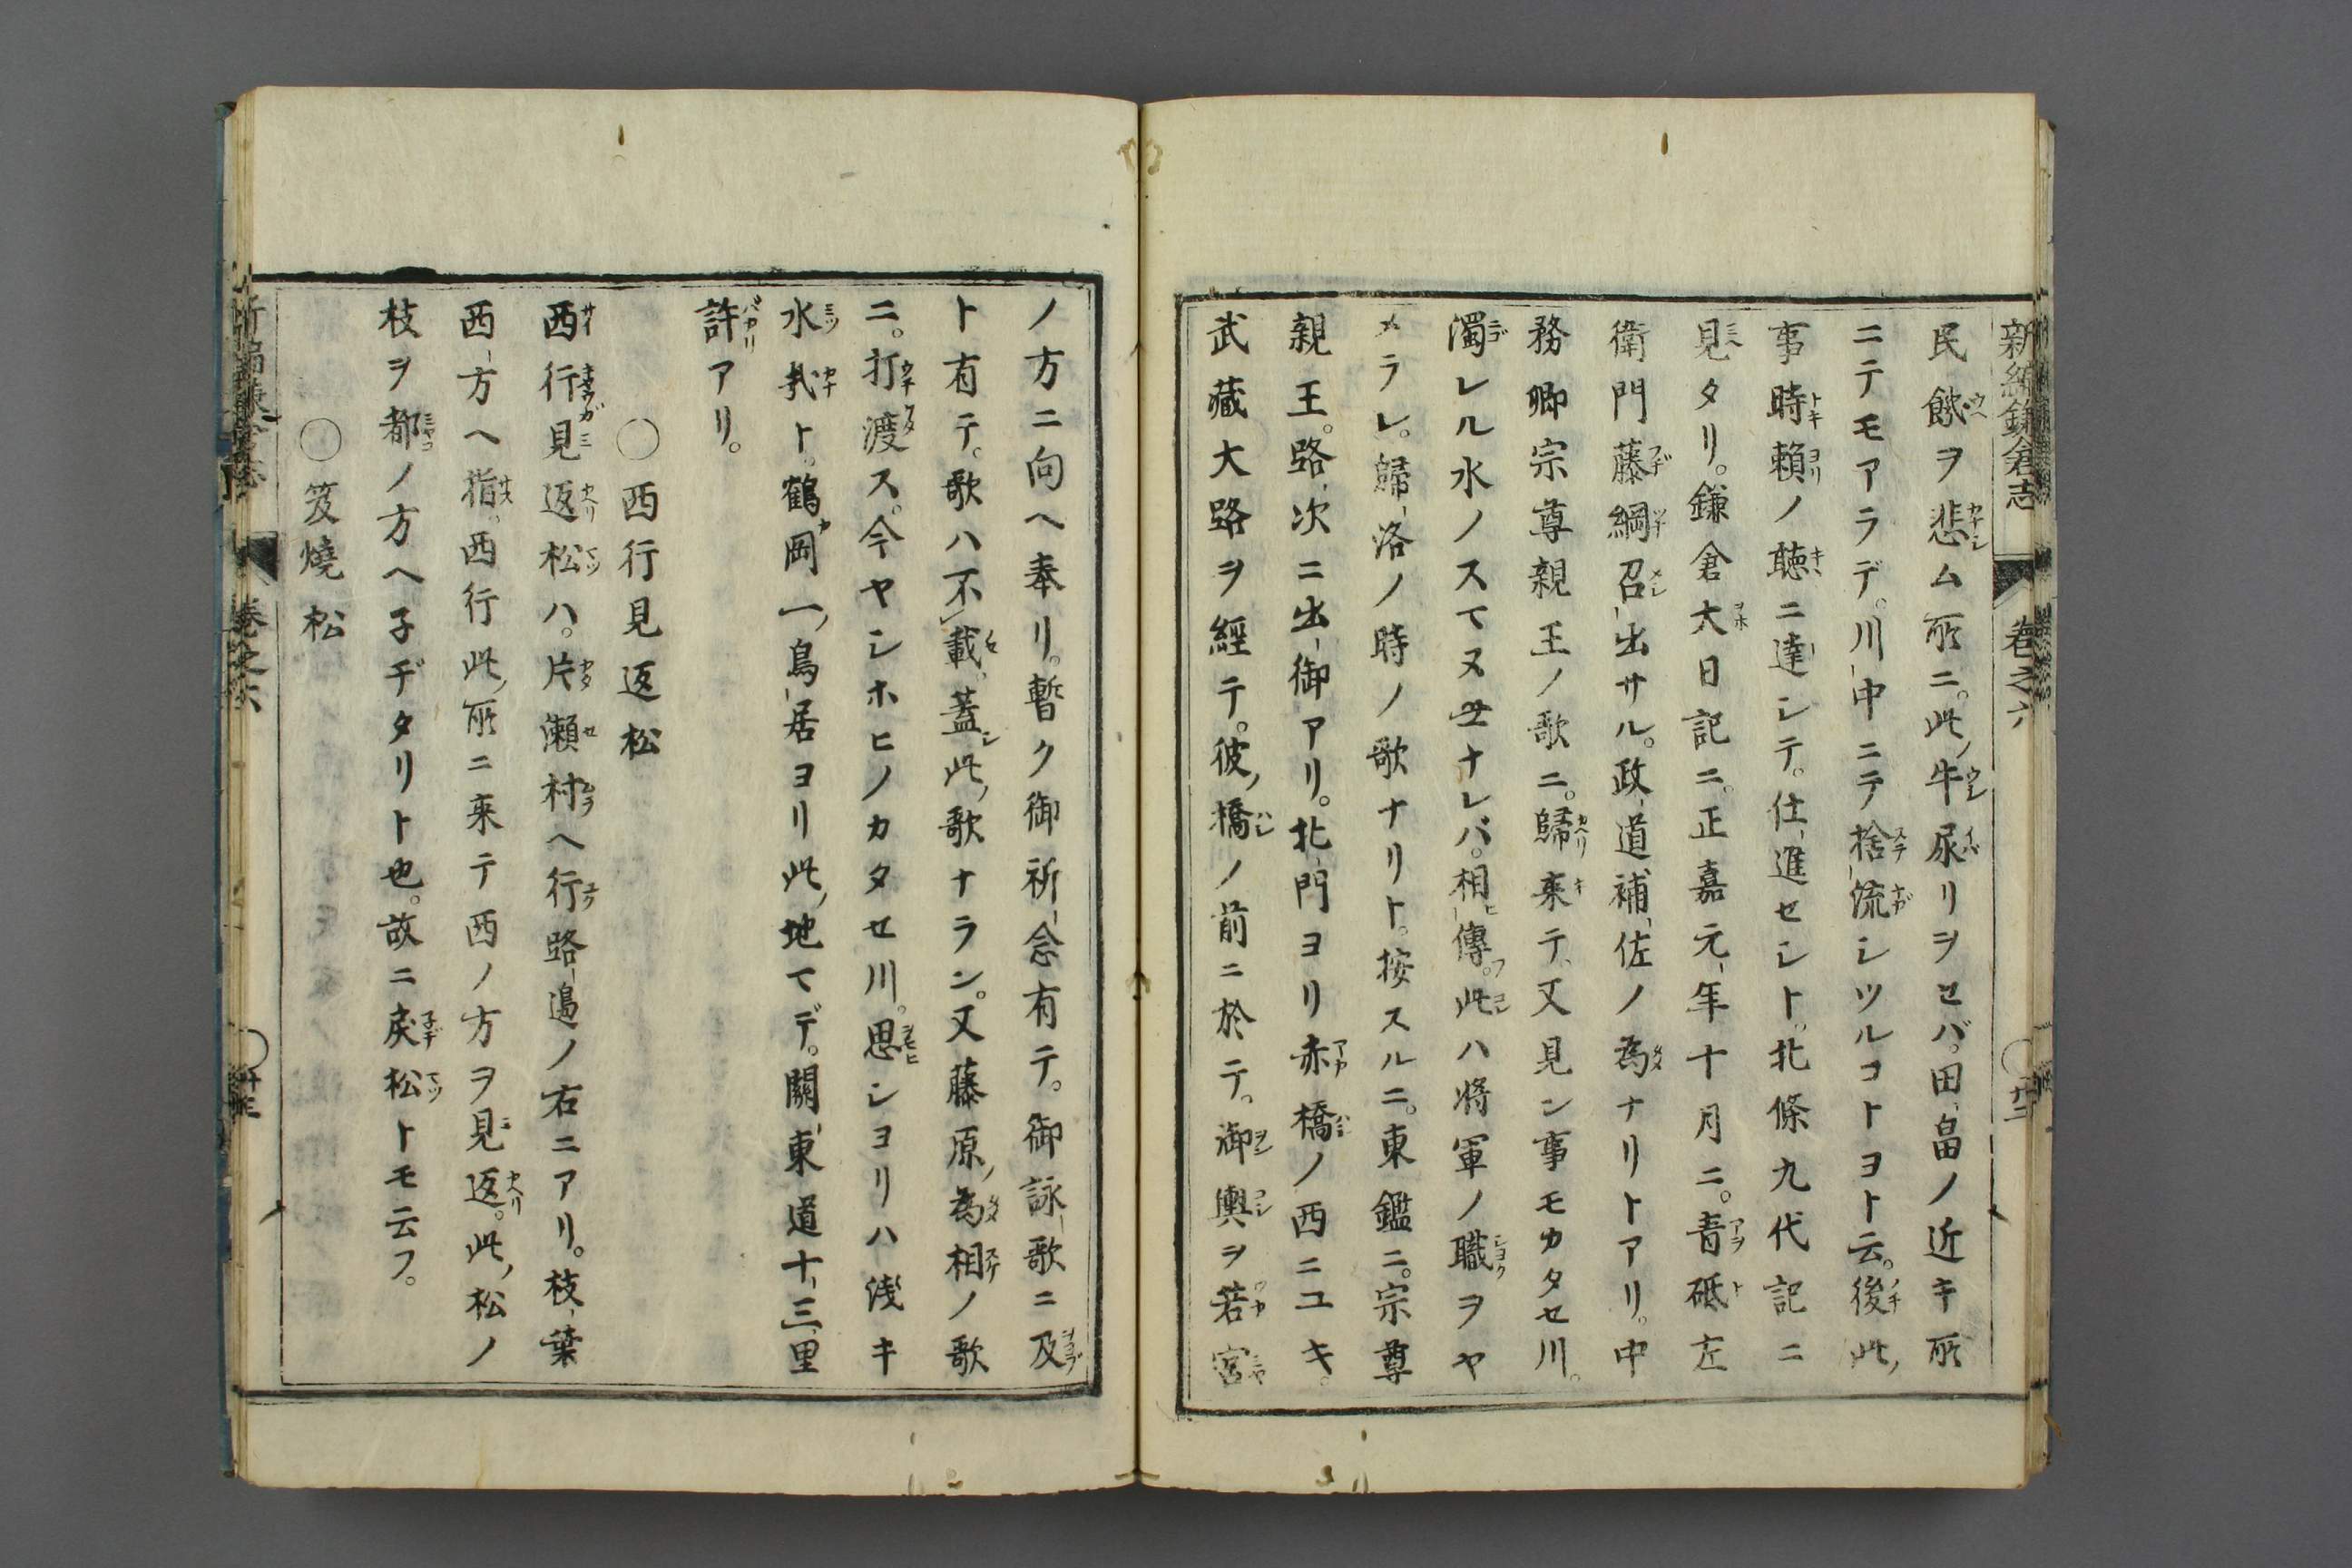 新編鎌倉志　卷之六　〇廿二
民餓ヲ悲ム所ニ。此ノ牛尿リヲセバ。田畠ノ近キ所
ニテモアラデ。川中ニテ捨流シツルコトヨト云。後此ノ
事時頼ノ聴ニ達シテ。仕進セシト。北條九代記ニ
見タリ。鎌倉大日記ニ。正嘉元年十月ニ。青砥左
衛門藤綱召出サル。政道補佐ノ為ナリトアリ。中
務卿宗尊親王ノ歌ニ。歸来テ又見ン事モカタセ川。
濁レル水ノスマヌ世ナレバ。相傳。此ハ将軍ノ職ヲヤ
メラレ。歸洛ノ時ノ歌ナリト。按スルニ。東鑑ニ。宗尊
親王。路次ニ出御アリ。北門ヨリ赤橋ノ西ニユキ。
武藏大路ヲ經テ。彼ノ橋ノ前ニ於テ。御輿ヲ若宮
ノ方ニ向ヘ奉リ。暫ク御祈念有テ。御詠歌ニ及
ト有テ。歌ハ不載。蓋此ノ歌ナラン。又藤原ノ為相ノ歌
ニ。打渡ス。今ヤシホヒノカタセ川。思シヨリハ淺キ
水哉ト。鶴岡一ノ鳥居ヨリ此ノ地マデ。關東道十三里
許アリ。
〇西行見返松
西行見返松ハ。片瀬村ヘ行路邉ノ右ニアリ。枝葉
西方ヘ指。西行此ノ所ニ来テ西ノ方ヲ見返。此ノ松ノ
枝ヲ都ノ方ヘ子ヂタリト也。故ニ戻松トモ云フ。
〇笈燒松
卷之六